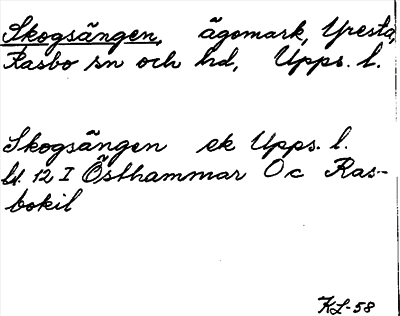 Skogsängen, ägomark, Yresta,
Rasbo sn och hd, Upps. l.
Skogsängen ek Upps. l.
bl. 12 I Östhammar Oc Ras-
bokil
KL-58